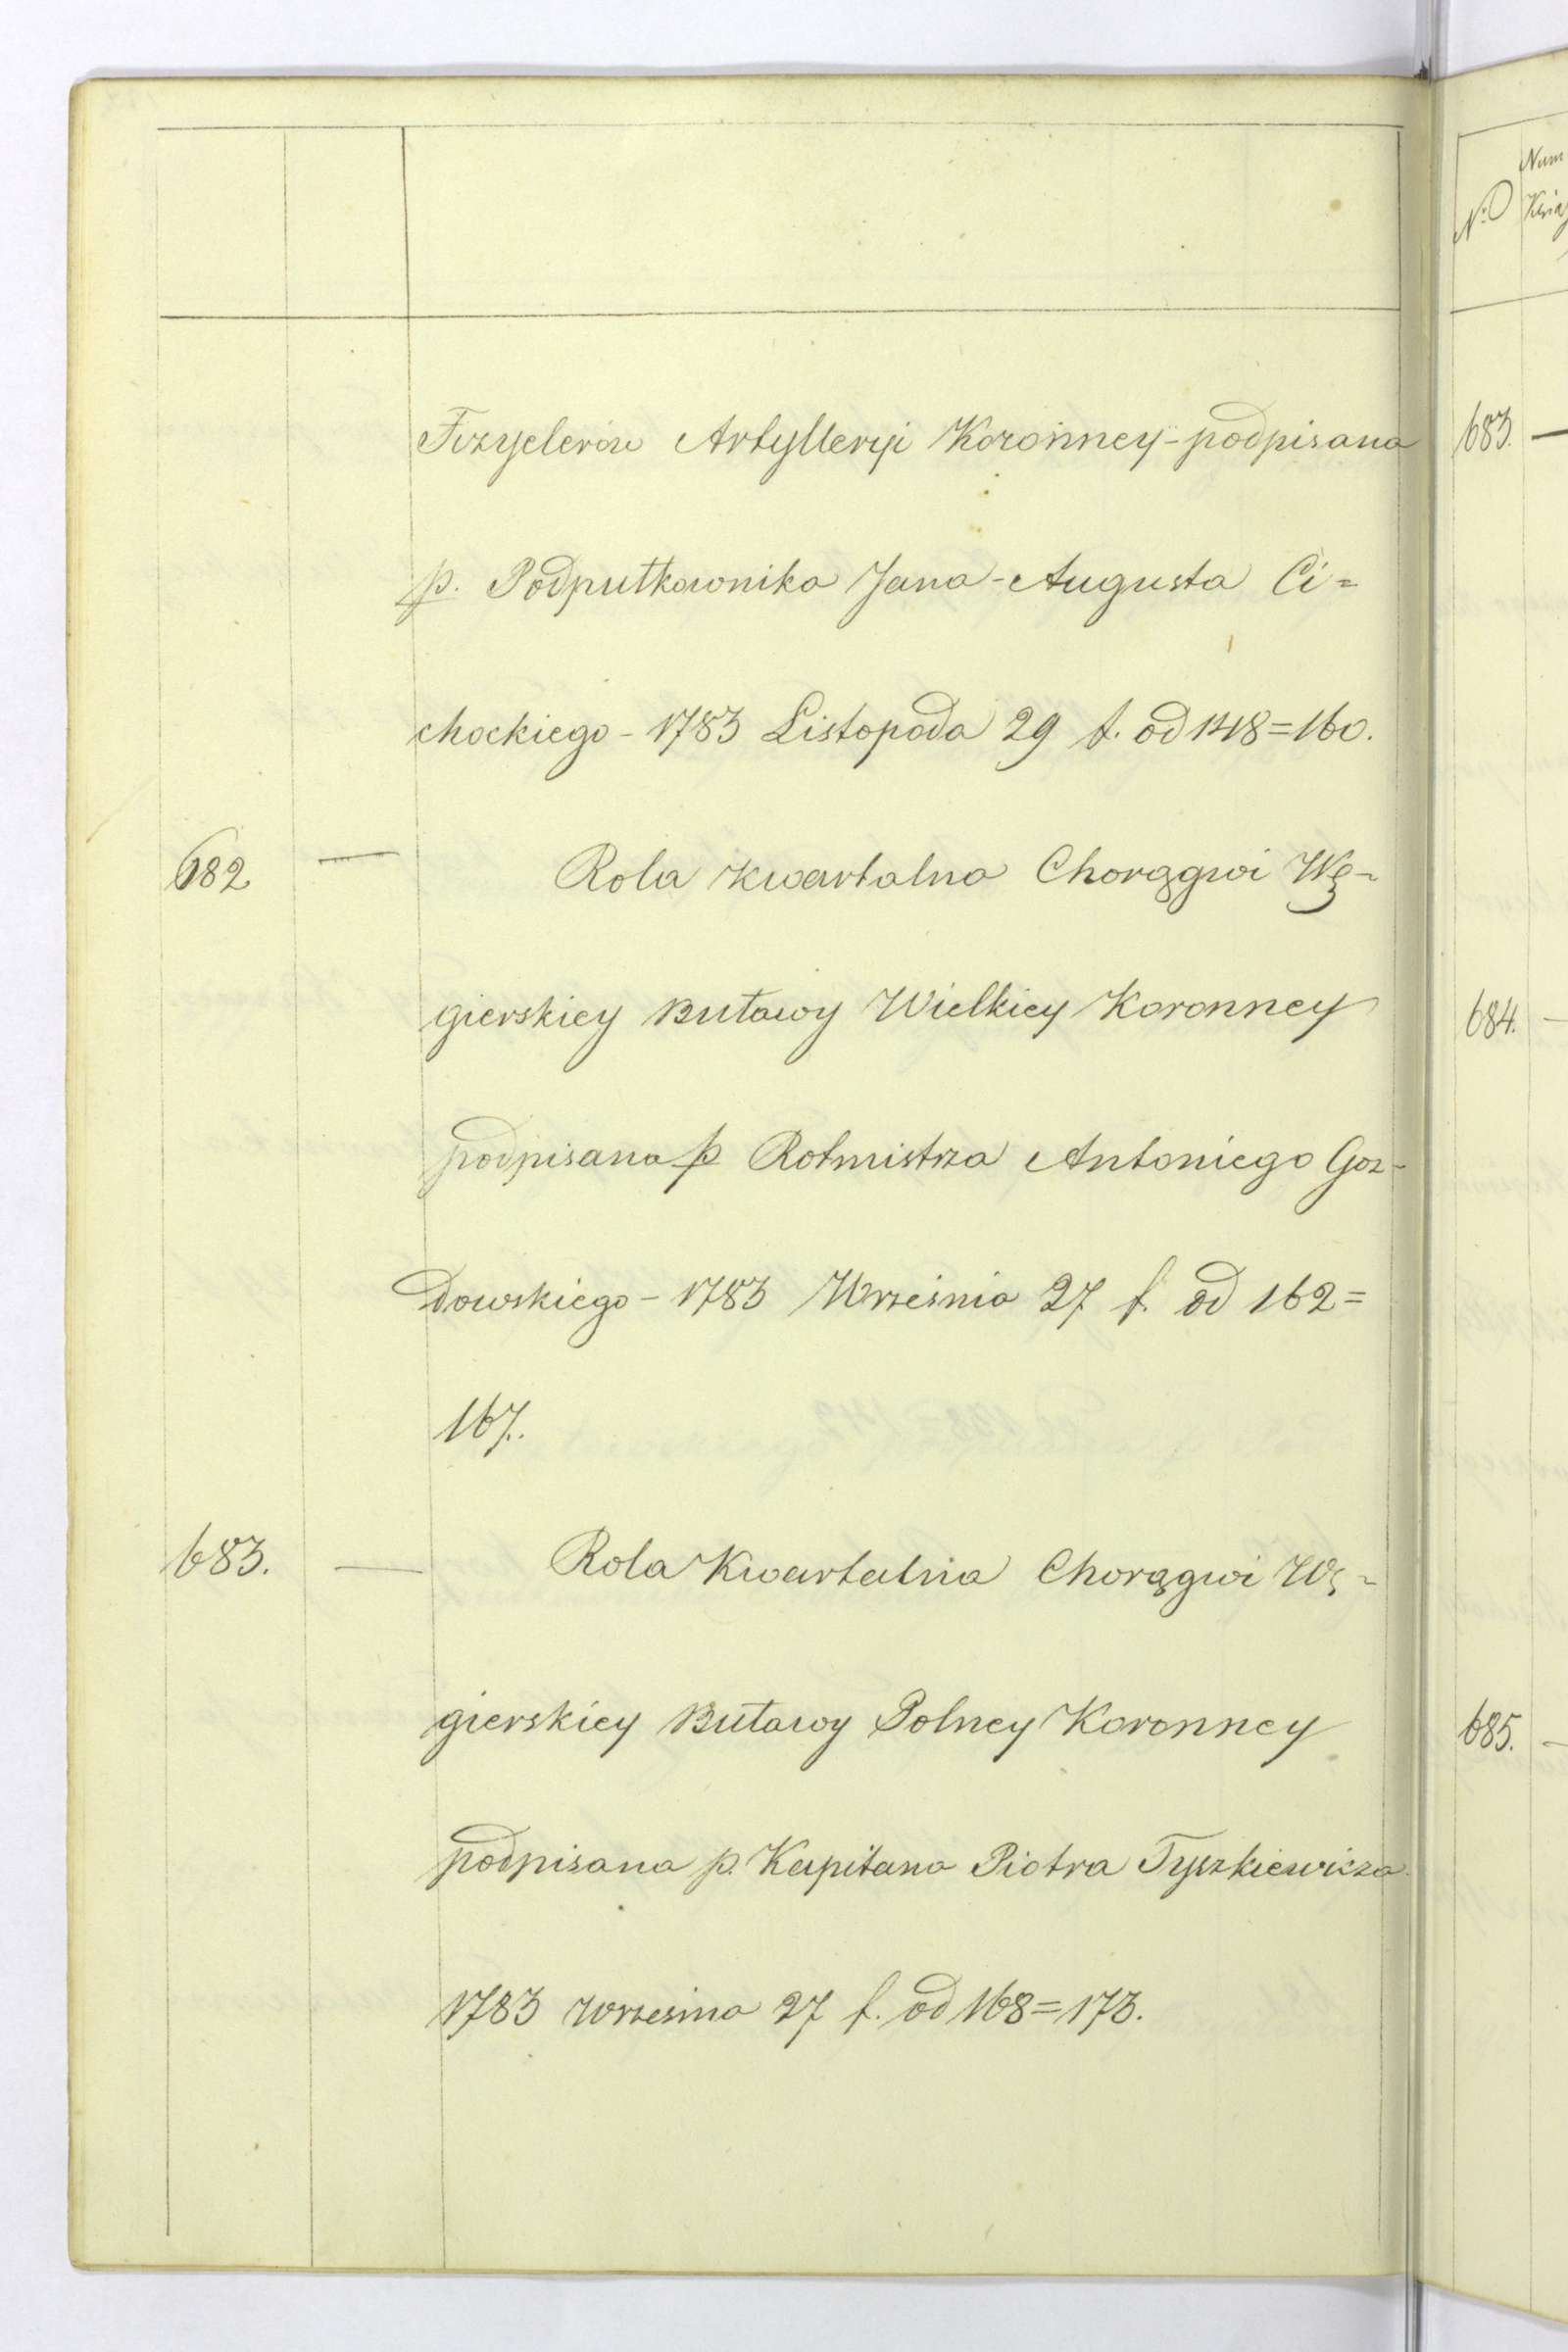 Fizyelerów Artylleryi Koronney - podpisana
p. Podpułkownika Jana - Augusta Ci=
chockiego - 1783 Listopada 29 f. od 148=160.
682 — Rola kwartalna Chorągwi Wę-
gierskiey Buławy Wielkiey Koronney
podpisana p Rotmistrza Antoniego Goz-
dowskiego - 1783 Września 27 f. od 162=
167.
683. — Rola Kwartalna Chorągwi Wę-
gierskiey Buławy Polney Koronney
podpisana p. Kapitana Piotra Tyszkiewicza
1783 września 27 f. od 168=173.
No
Num
Ksią
683. —
684. —
685. —